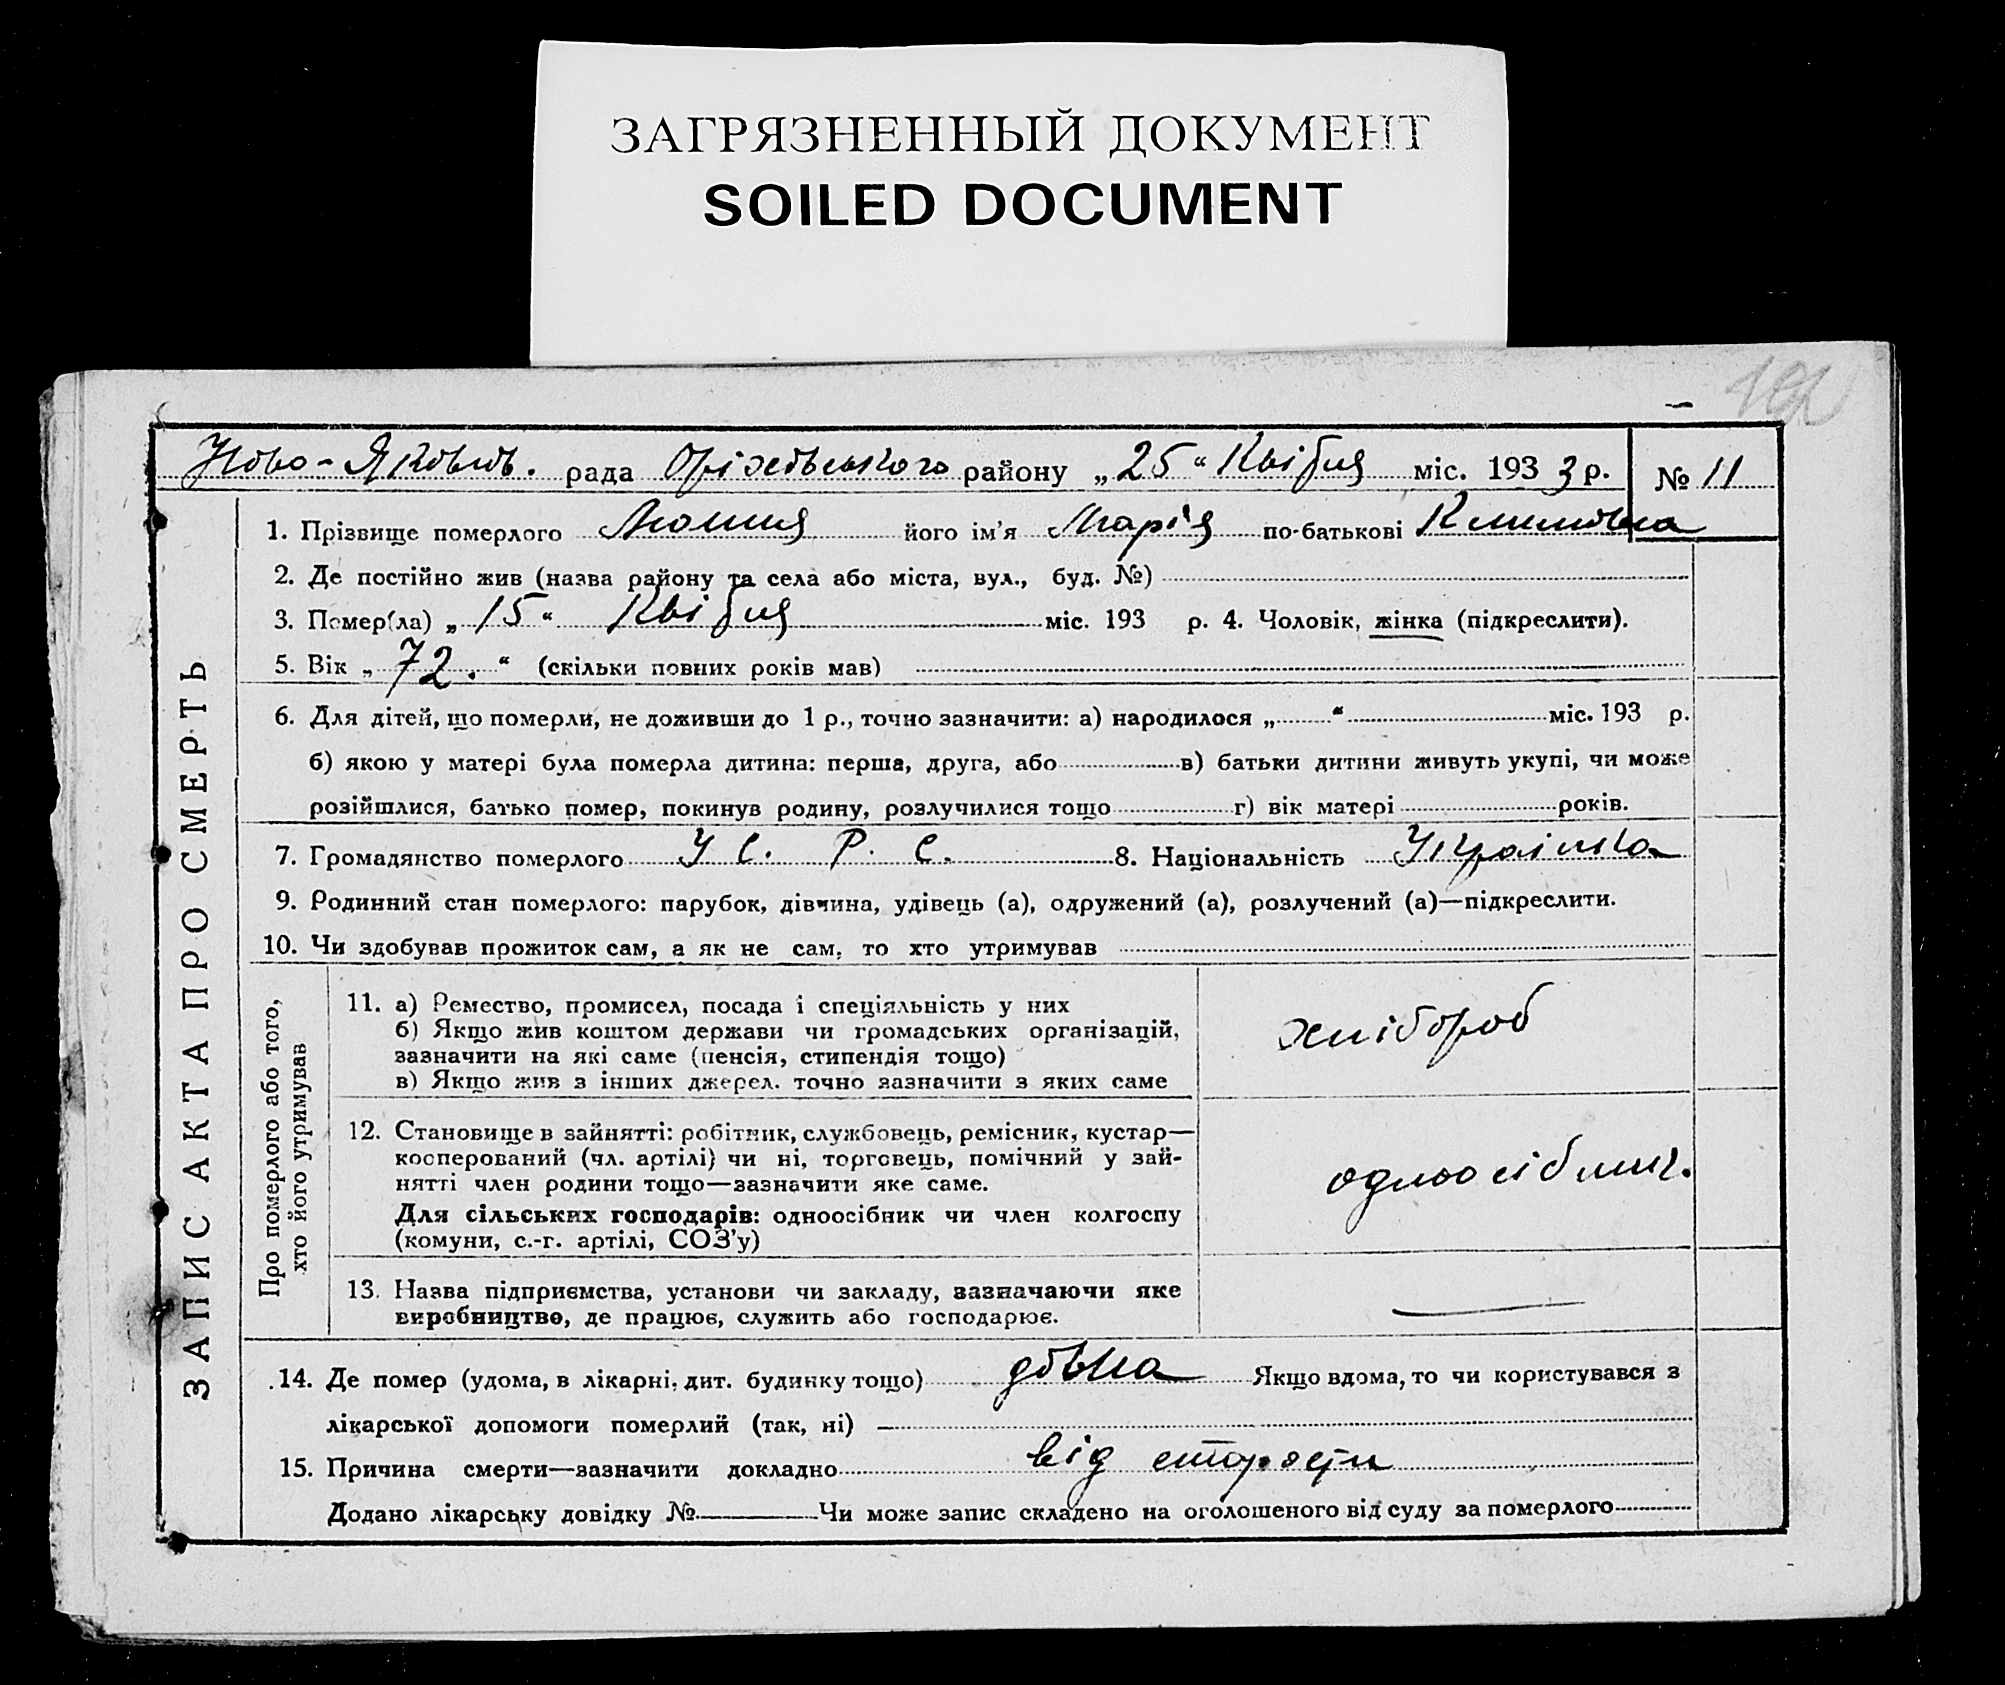 ЗАГРЯЗНЕННЫЙ ДОКУМЕНТ
SOILED DOCUMENT
Ново-Яковлів. рада Оріхівського району „25“ Квітня міс. 1933 р. № 11
1. Прізвище померлого його ім'я Марія по-батькові Климовна
2. Де постійно жив (назва району та села або міста, вул., буд. №)
3. Помер(ла) „15“ Квітня міс. 193 р. 4. Чоловік, жінка (підкреслити).
5. Вік „72.“ (скільки повних років мав)
6. Для дітей, що померли, не доживши до 1 р., точно зазначити: а) народилося „ “ міс. 193 р.
б) якою у матері була померла дитина: перша, друга, або в) батьки дитини живуть укупі, чи може
розійшлися, батько помер, покинув родину, розлучилися тощо г) вік матері років.
7. Громадянство померлого У С. Р. С. 8. Національність Українка
9. Родинний стан померлого: парубок, дівчина, удівець (а), одружений (а), розлучений (а)—підкреслити.
10. Чи здобував прожиток сам, а як не сам, то хто утримував
ЗАПИС АКТА ПРО СМЕРТЬ
Про померлого або того,
хто його утримував
11. а) Ремество, промисел, посада і спеціяльність у них
б) Якщо жив коштом держави чи громадських організацій,
зазначити на які саме (пенсія, стипендія тощо)
в) Якщо жив з інших джерел. точно зазначити з яких саме
хлібороб
12. Становище в зайнятті: робітник, службовець, ремісник, кустар—
кооперований (чл. артілі) чи ні, торговець, помічний у зай-
нятті член родини тощо—зазначити яке саме.
Для сільських господарів: одноосібник чи член колгоспу
(комуни, с.-г. артілі, СОЗ'у)
одноосібник.
13. Назва підприємства, установи чи закладу, зазначаючи яке
виробництво, де працює, служить або господарює.
14. Де помер (удома, в лікарні, дит. будинку тощо) дома Якщо вдома, то чи користувався з
лікарської допомоги померлий (так, ні)
15. Причина смерти—зазначити докладно від старости
Додано лікарську довідку № Чи може запис складено на оголошеного від суду за померлого